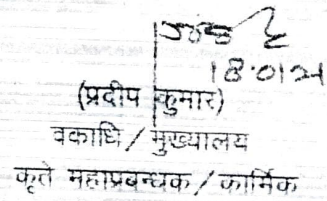 18.01.21
(प्रदीप कुमार)
वकाधि / मुख्यालय
कृते महाप्रबन्धक / कार्मिक